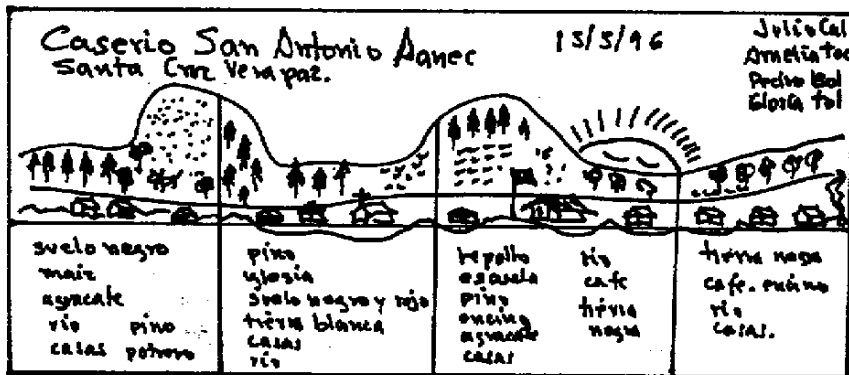 Caserio San Antonio Panec
Santa Cruz Verapaz.
15/5/96
Julio Cal
Amelia
Pedro
Gloria
suelo negro
maiz
aguacate
rio pino
casas potrero
pino
iglesia
suelo negro y rojo
tierra blanca
casas
rio
repollo
escuela
pino
encino
aguacate
casas
rio
cafe
tierra
negra
tierra negra
cafe. encino
rio
casas.